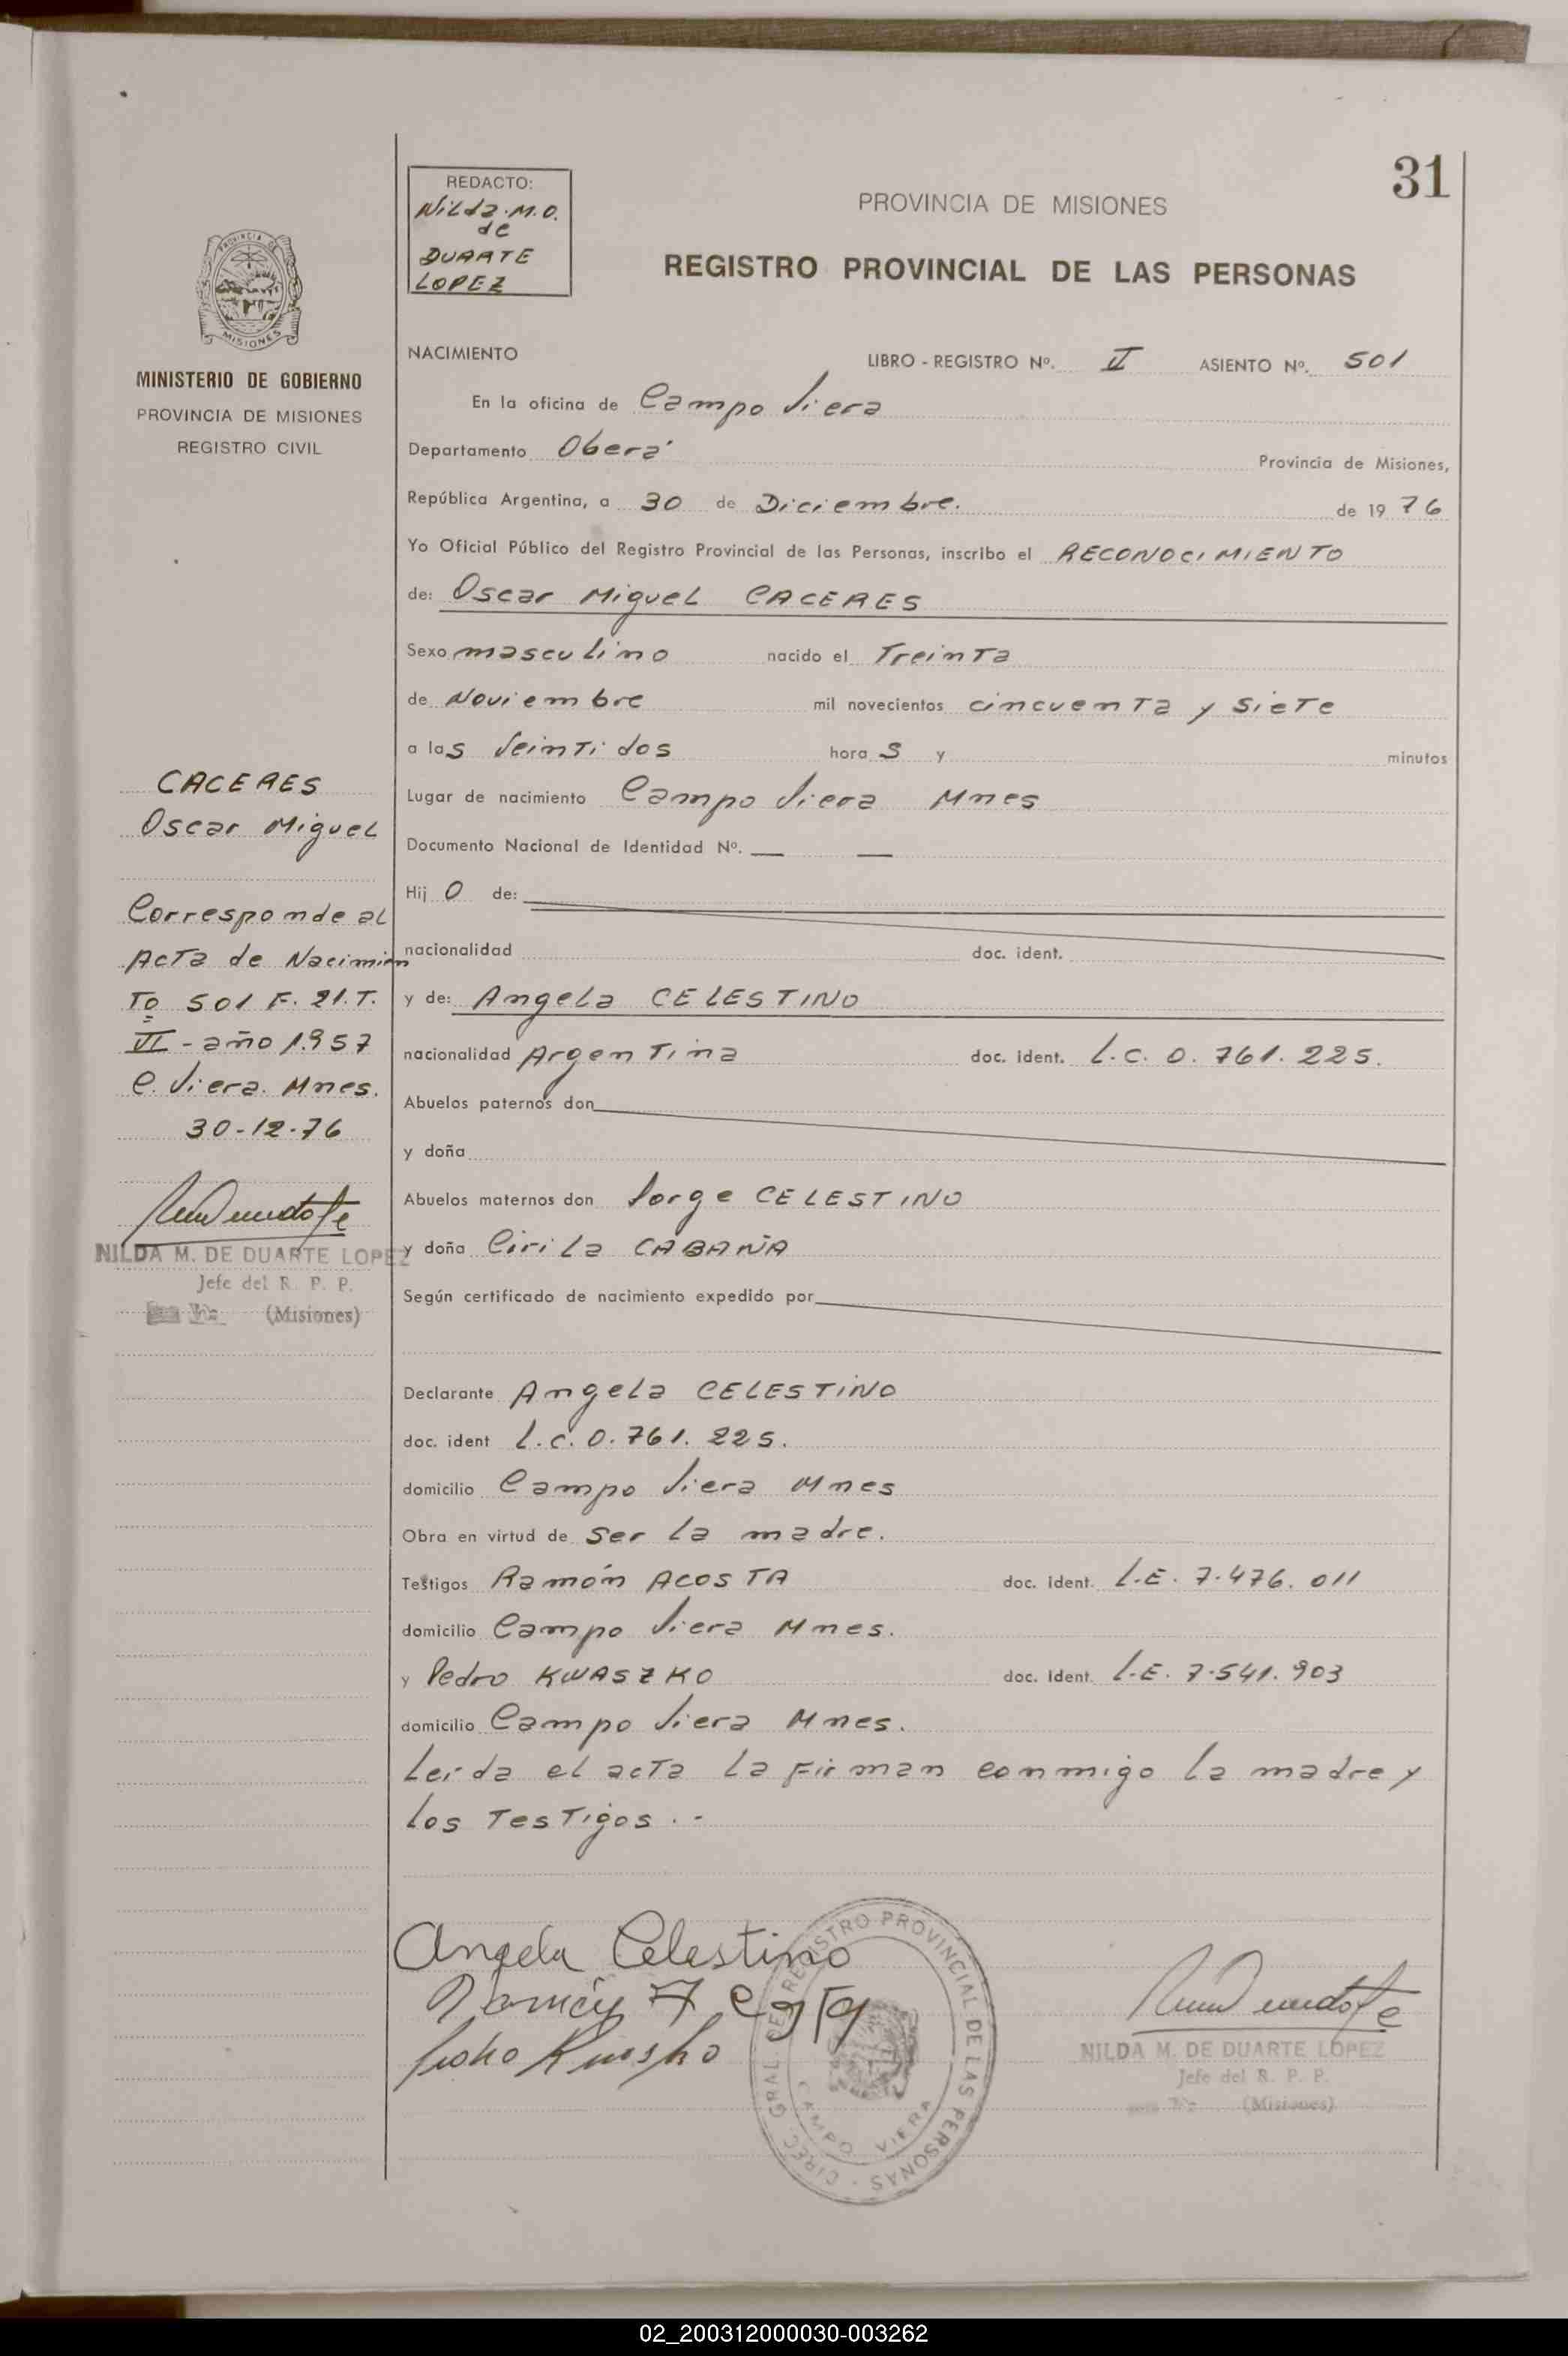 31
REDACTO:
Nilda. M. O.
de
DUARTE
LOPEZ
PROVINCIA DE MISIONES
REGISTRO PROVINCIAL DE LAS PERSONAS
PROVINCIA DE
MISIONES
MINISTERIO DE GOBIERNO
PROVINCIA DE MISIONES
REGISTRO CIVIL
NACIMIENTO LIBRO - REGISTRO Nº. II ASIENTO Nº. 501
En la oficina de Campo Viera
Departamento Oberá Provincia de Misiones,
República Argentina, a 30 de Diciembre. de 19 76
Yo Oficial Público del Registro Provincial de las Personas, inscribo el RECONOCIMIENTO
de: Oscar Miguel CACERES
Sexo masculino nacido el Treinta
de Noviembre mil novecientos cincuenta y siete
a las Veinti dos hora s y minutos
Lugar de nacimiento Campo Viera Mnes
Documento Nacional de Identidad Nº. — —
Hij o de:
nacionalidad doc. ident.
y de: Angela CELESTINO
nacionalidad Argentina doc. ident. L.C. 0.761.225.
Abuelos paternos don
y doña
Abuelos maternos don Jorge CELESTINO
y doña Cirila CABAÑA
Según certificado de nacimiento expedido por
Declarante Angela CELESTINO
doc. ident L.C. 0.761.225.
domicilio Campo Viera Mnes
Obra en virtud de ser la madre.
Testigos Ramón ACOSTA doc. ident. L.E. 7.476.011
domicilio Campo Viera Mnes.
y Pedro KWASZKO doc. Ident. L.E. 7.541.903
domicilio Campo Viera Mnes.
Leida el acta la firman conmigo la madre y
los Testigos. -
CACERES
Oscar Miguel
Corresponde al
Acta de Nacimien
to 501 F. 21. T.
II - año 1.957
C. Viera. Mnes.
30-12-76
NILDA M. DE DUARTE LOPEZ
Jefe del R. P. P.
(Misiones)
Angela Celestino
DIREC. GRAL. DEL REGISTRO PROVINCIAL DE LAS PERSONAS
CAMPO VIERA
NILDA M. DE DUARTE LOPEZ
Jefe del R. P. P.
(Misiones)
02_200312000030-003262